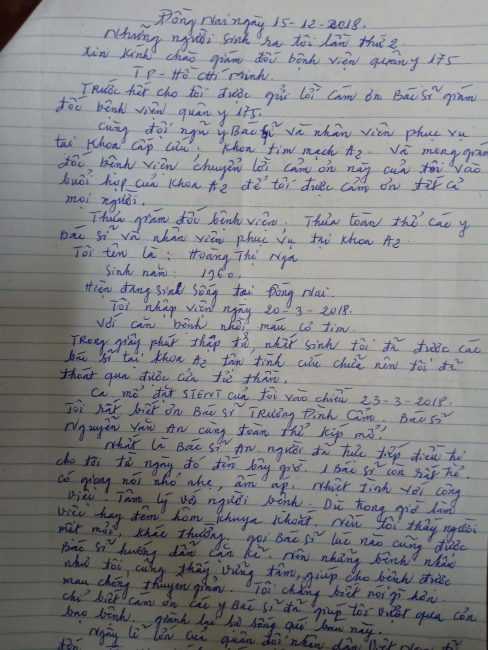 Đồng Nai ngày 15-12-2018.
Những người sinh ra tôi lần thứ 2.
Xin kính chào giám đốc bệnh viện quân y 175
TP-Hồ Chí Minh.
Trước hết cho tôi được gửi lời cám ơn Bác sĩ giám
đốc bệnh viện quân y 175.
cùng đội ngũ y Bác sĩ và nhân viên phục vụ
tại khoa cấp cứu. khoa tim mạch A2. Và mong giám
đốc bệnh viện chuyển lời cảm ơn này của tôi vào
buổi họp của khoa A2 để tôi được cám ơn tất cả
mọi người.
Thưa giám đốc bệnh viện. Thưa toàn thể các y
Bác sĩ và nhân viên phục vụ tại khoa A2.
Tôi tên là : Hoàng Thị Nga
Sinh năm: 1960.
Hiện đang sinh sống tại Đồng Nai.
Tôi nhập viện ngày 20-3-2018.
Với căn bệnh nhồi máu cơ tim.
Trong giây phút thập tử, nhất sinh tôi đã được các
bác sĩ tại khoa A2 tận tình cứu chữa nên tôi đã
thoát qua được cửa tử thần.
Ca mổ đặt STENT của tôi vào chiều 23-3-2018.
Tôi rất biết ơn Bác sĩ Trương Đình Cẩm. Bác sĩ
Nguyễn Văn An cùng toàn thể kíp mổ.
Nhất là Bác sĩ An, người đã trực tiếp điều trị
cho tôi từ ngày đó đến bây giờ. 1 Bác sĩ còn rất trẻ.
có giọng nói nhỏ nhẹ, ấm áp. Nhiệt tình với công
việc. Tâm lý với người bệnh. Dù trong giờ làm
việc hay đêm hôm khuya khoắt. Nếu tôi thấy người
mệt mỏi, khác thường. gọi Bác sĩ lúc nào cũng được
Bác sĩ hướng dẫn cặn kẽ. Nên những bệnh nhân
như tôi cũng thấy vững tâm, giúp cho bệnh được
mau chóng thuyên giảm. Tôi chẳng biết nói gì hơn.
chỉ biết cám ơn các y Bác sĩ đã giúp tôi vượt qua cơn
bạo bệnh. giành lại sự sống quí báu này.
Ngày lễ lớn của quân đội nhân dân Việt Nam đã